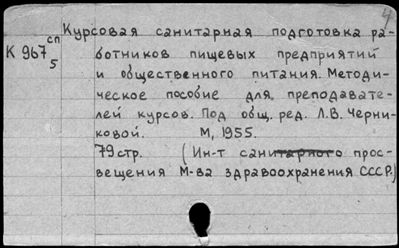 4
Курсовая санитарная подготовка ра-
К 967 сп
5
ботников пищевых предприятий
и общественного питания. Методи-
ческое пособие для преподавате-
лей курсов. Под общ. ред. Л.В. Черни-
ковой. М., 1955.
79 стр. (Ин-т санитарного прос-
вещения М-ва здравоохранения СССР.)